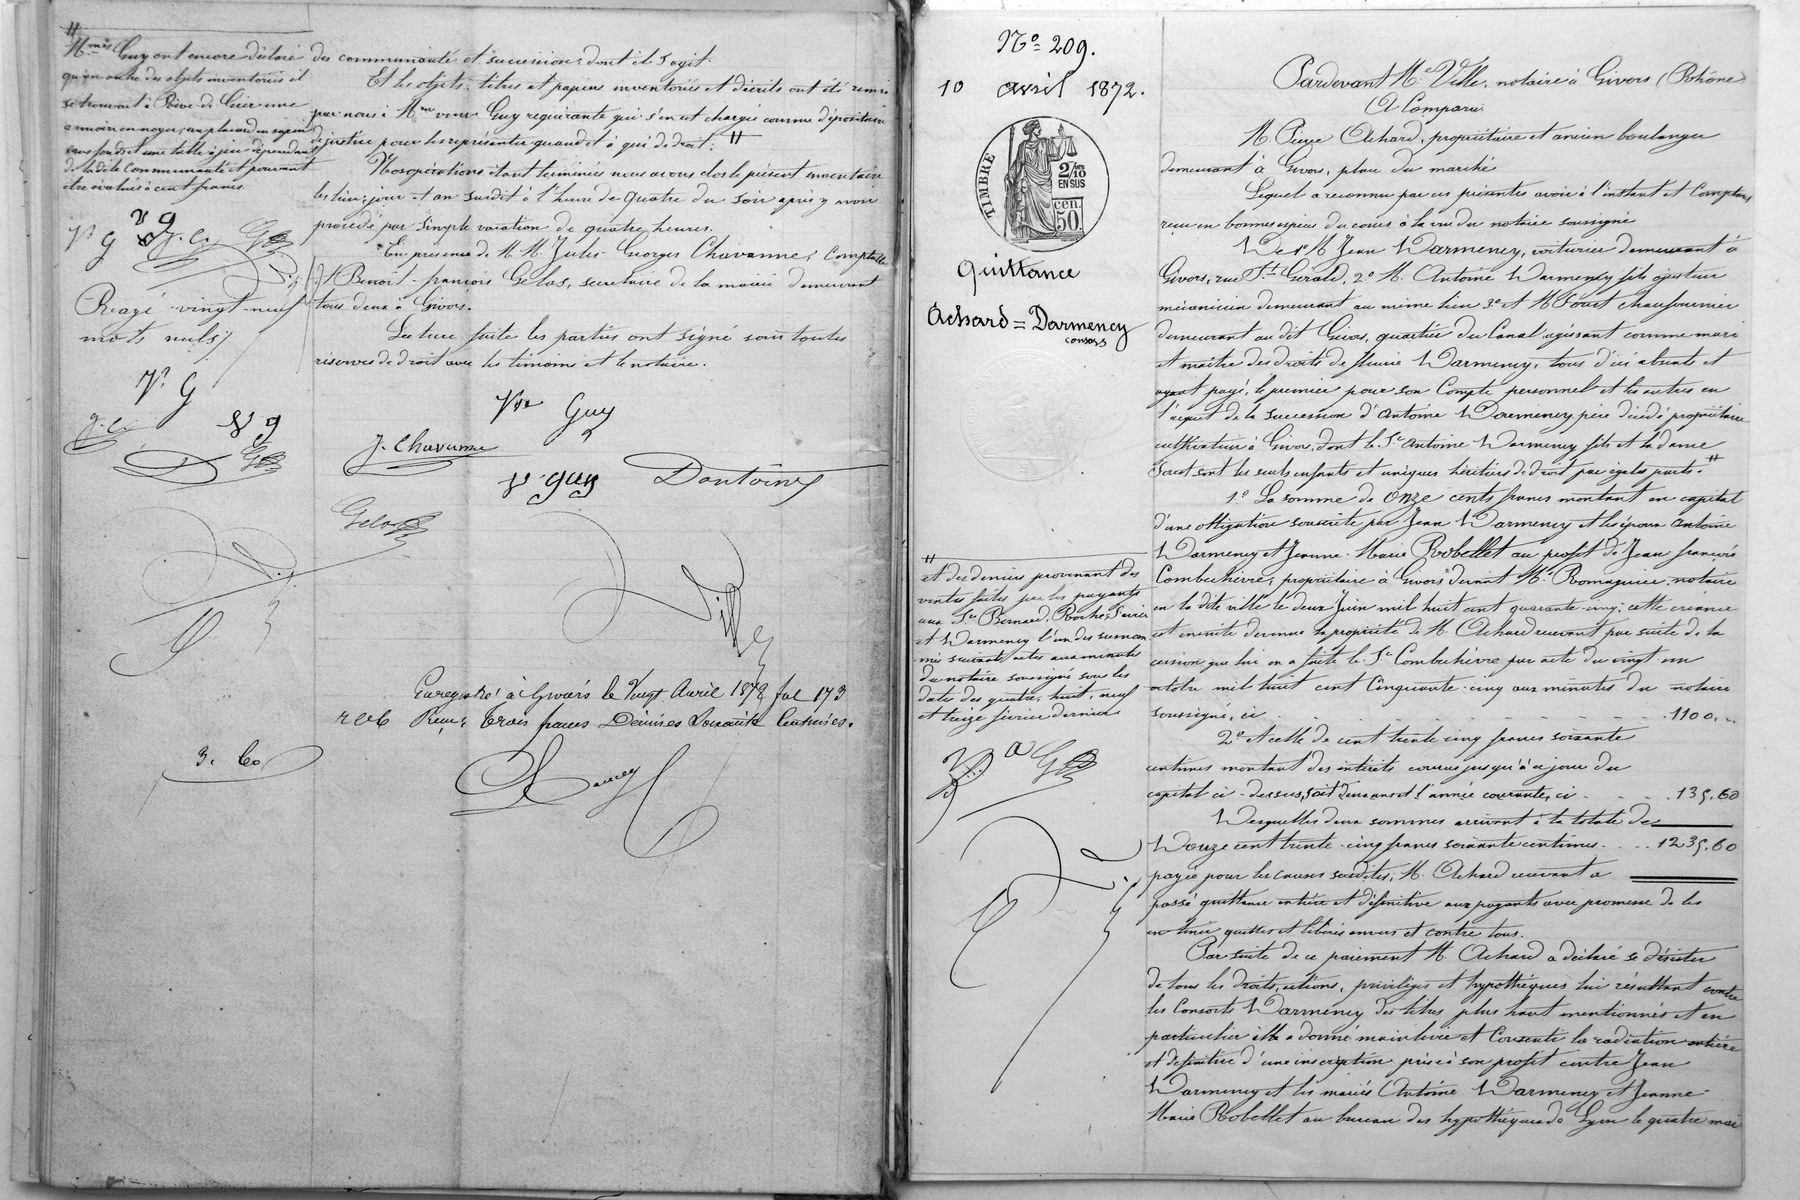 #
Mmes Guy ont encore déclaré
qu'en outre des objets inventoriés il
se trouvait à Rive-de-Gier une
armoire en noyer, un placard en sapin
sans fonds et une table à jeu dépendant
de la dite communauté et pouvant
être évalués à cent francs.
Vve G v g J. C. G
Rayé vingt-neuf
mots nuls
Vve G
J. C. v g
des communauté et succession dont il s'agit.
Et les objets, titres et papiers inventoriés et décrits ont été remis
par nous à Mme veuve Guy requérante qui s'en est chargée comme dépositaire
de justice pour les représenter quand et à qui de droit. #
Nos opérations étant terminées nous avons clos le présent inventaire
les lieu, jour et an susdit à l'heure de quatre du soir après y avoir
procédé par simple vacation de quatre heures.
En présence de M.M. Jules Georges Chavanne, comptable
et Benoît-françois Gelas, secrétaire de la mairie demeurant
tous deux à Givors.
Lecture faite les parties ont signé sous toutes
réserves de droit avec les témoins et le notaire.
Vve Guy
J. Chavanne
v. guy
Gelas
Enregistré à Givors le Vingt Avril 1872 fol 173
r c 6 Reçu: Trois francs Décimes Soixante Centimes.
3. 60
No 209.
10 avril 1872.
TIMBRE
2/10
EN SUS
50 cen.
Quittance
Achard = Darmency
consors
#
et des deniers provenant des
ventes faites par les payants
aux Srs Bernard, Roche,
et Darmency l'un des surnom
més suivant actes aux minutes
du notaire soussigné sous les
date des quatre, huit, neuf
et treize février dernier
Pardevant Me Ville, notaire à Givors (Rhône)
A Comparu
M. Pierre Achard, propriétaire et ancien boulanger
demeurant à Givors, place du marché
Lequel a reconnu par ces présentes avoir à l'instant et Comptant
reçu en bonnes espèces du cours à la vue du notaire soussigné
De 1o M Jean Darmency, voiturier demeurant à
Givors, rue St Gérald, 2o M. Antoine Darmency fils ajusteur
mécanicien demeurant au même lieu 3o et M. chaufournier
demeurant au dit Givors, quartier du Canal, agissant comme mari
et maître des droits de fleurie Darmency, tous d'ici absents et
ayant payé, le premier pour son Compte personnel et les autres en
l'acquit de la succession d'Antoine Darmency, père décédé propriétaire
cultivateur à Givors, dont le Sr Antoine Darmency fils et la dame
sont les seuls enfants et uniques héritiers de droit par égales parts. #
1o La somme de Onze cents francs montant en capital
d'une obligation souscrite par Jean Darmency et les époux Antoine
Darmency et Jeanne-Marie Robellet au profit de Jean françois
Combechièvre, propriétaire à Givors devant Me Romagnier, notaire
en la dite ville le deux Juin mil huit cent quarante-cinq; cette créance
est ensuite devenue la propriété de M. Achard recevant par suite de la
cession que lui en a faite le Sr Combechièvre par acte du vingt un
octobre mil huit cent Cinquante-cinq aux minutes du notaire
soussigné, ci 1100. "
2o Et celle de cent trente cinq francs soixante
centimes montant des intérêts courus jusqu'à ce jour du
capital ci-dessus, soit deux ans et l'année courante, ci 135.60
Desquelles deux sommes arrivant à la totale de
Douze cent trente-cinq francs soixante centimes 1235.60
payée pour les causes susdites, M. Achard recevant a
passé quittance entière et définitive aux payants avec promesse de les
en tenir quittes et libérés envers et contre tous.
Par suite de ce paiement M. Achard a déclaré se désister
de tous les droits, actions, privilèges et hypothèques lui résultant contre
les Consorts Darmency des titres plus haut mentionnés et en
particulier il a donné mainlevée et Consenti la radiation entière
et définitive d'une inscription prise à son profit contre Jean
Darmency et les mariés Antoine Darmency et Jeanne-
Marie Robellet au bureau des hypothèques de Lyon le quatre mai